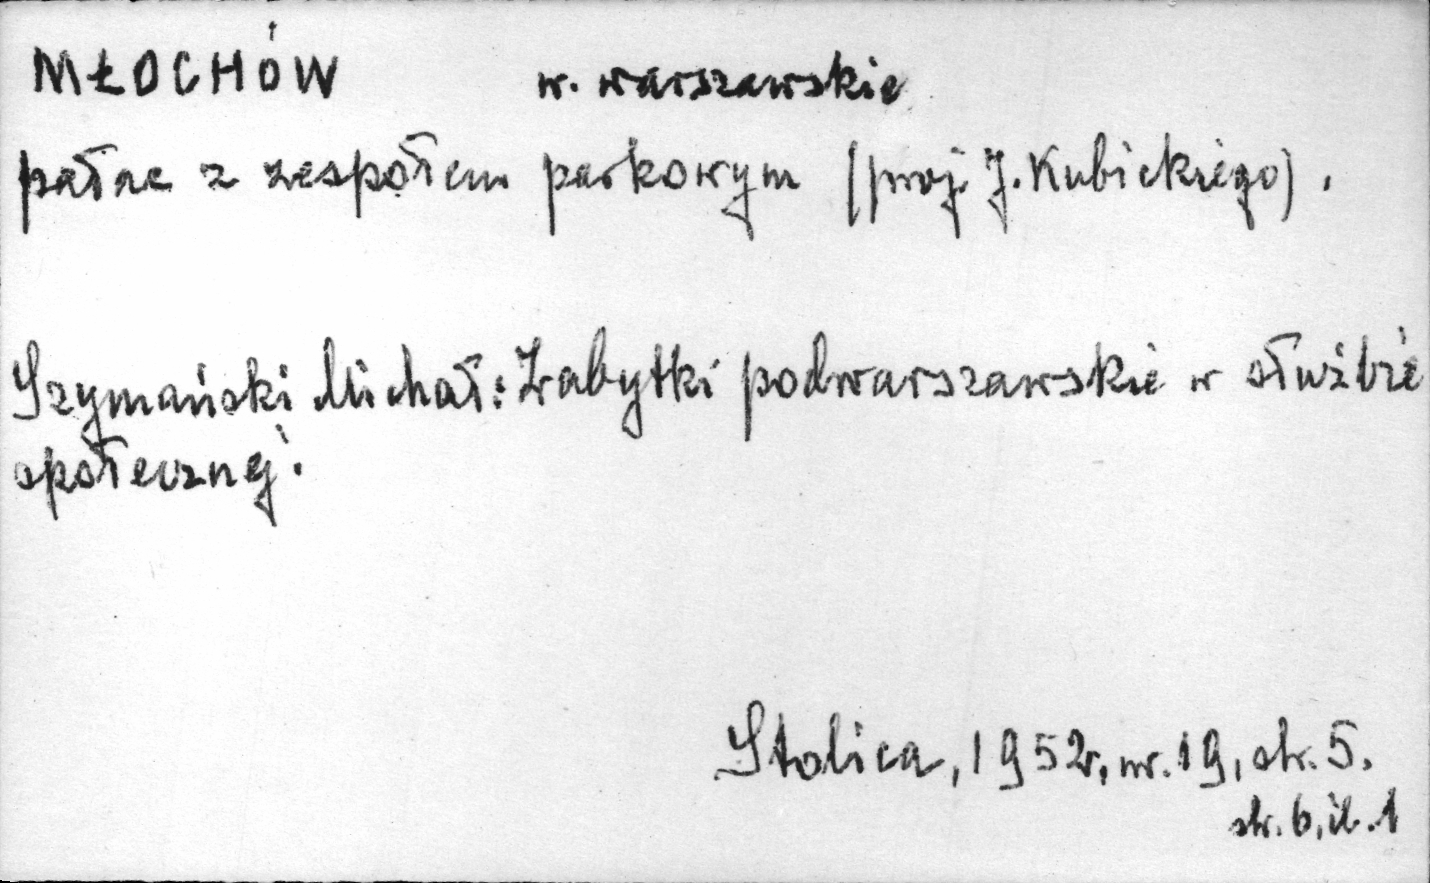 MŁOCHÓW w. warszawskie
pałac z zespołem parkowym (proj. J. Kubickiego).
Szymański Michał: Zabytki podwarszawskie w służbie
społecznej.
Stolica, 1952r, nr. 19, str. 5.
str. 6, il. 1